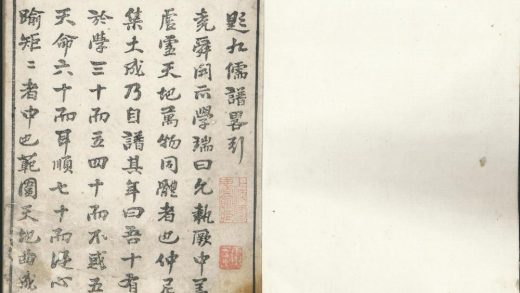 題九儒譜畧引
堯舜開示學端曰允執厥中
虛靈天地萬物同體者也仲尼
集大成乃自譜其年曰吾十有
於學三十而立四十而不惑五
天命六十而耳順七十而從心
踰矩〻者中也範圍天地曲成